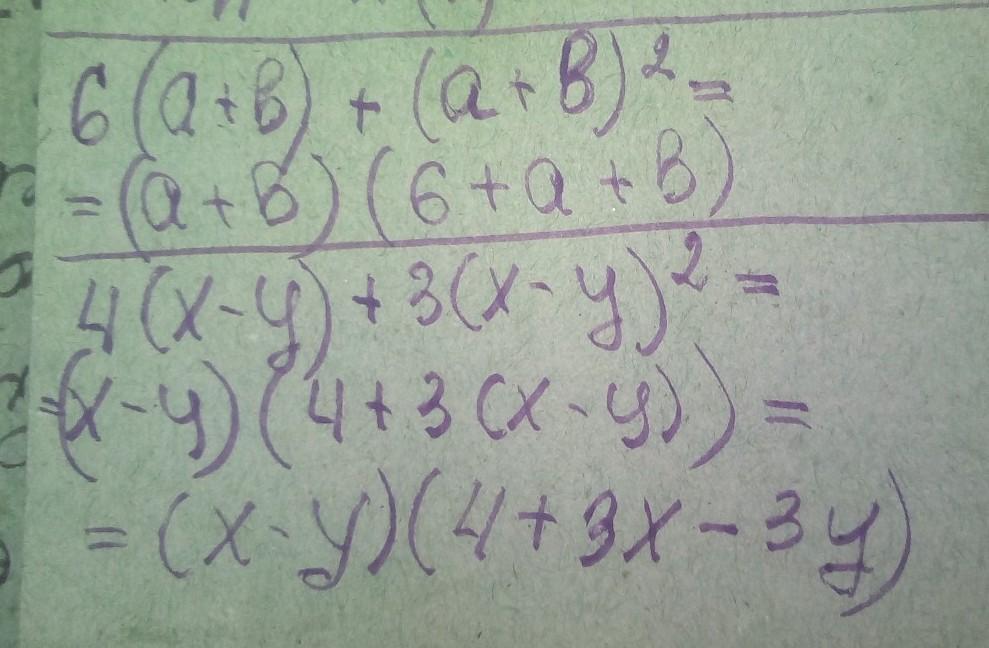 6(a+b) + (a+b)² =
= (a+b)(6+a+b)
4(x-y)+3(x-y)² =
=(x-y)(4+3(x-y)) =
= (x-y)(4+3x-3y)